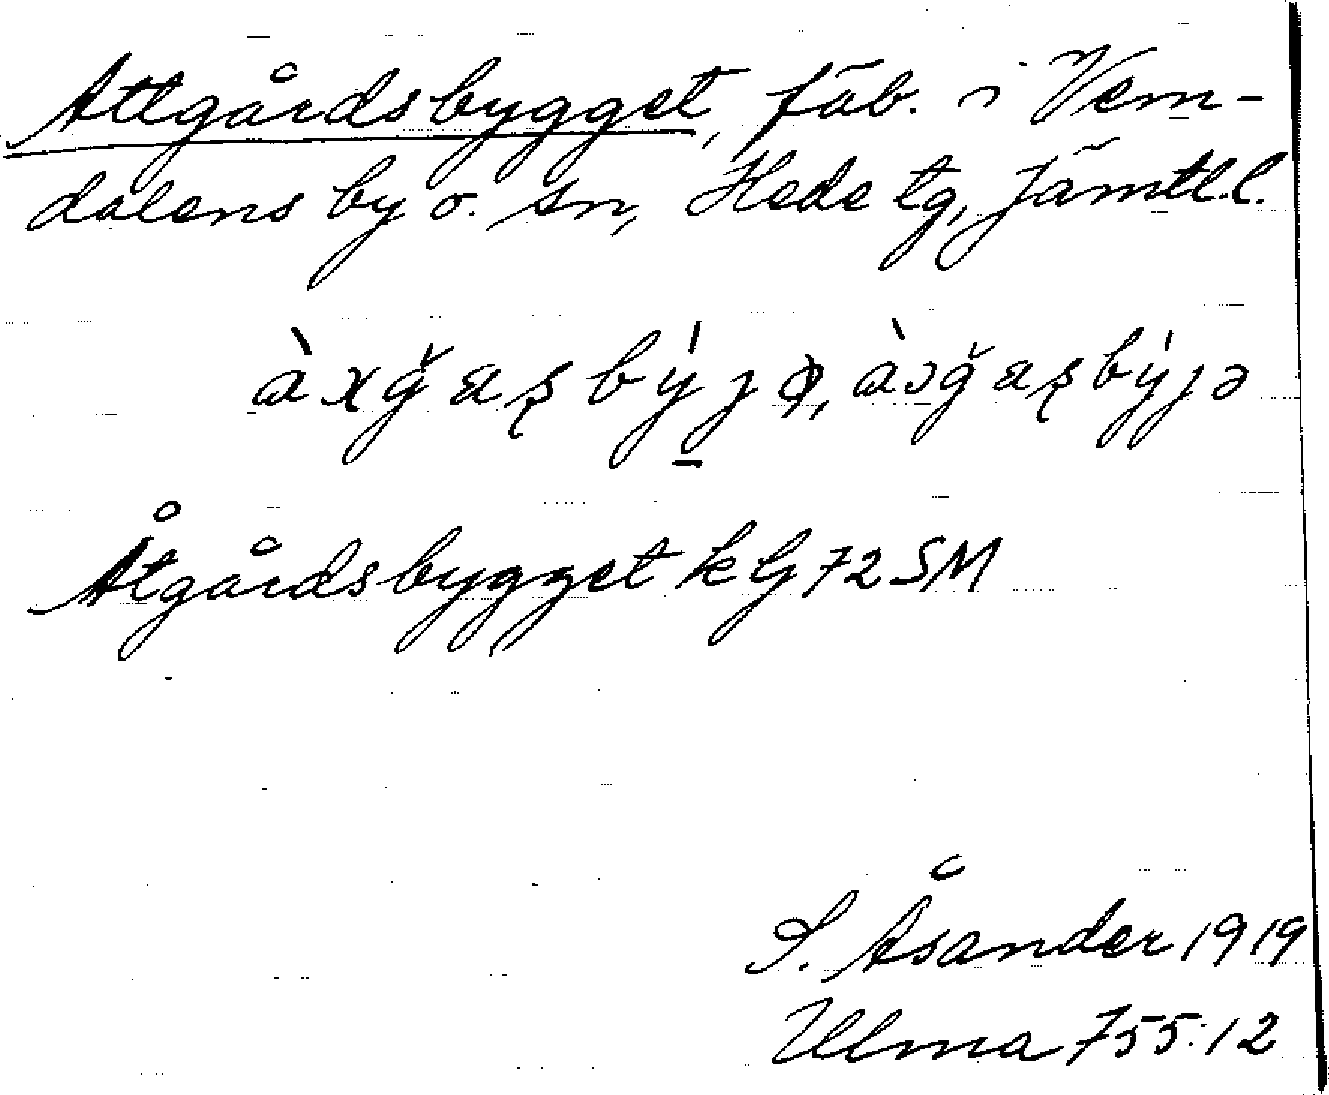 Attgårdsbygget, fäb. i Vem-
dalens by o. sn, Hede tg, Jämtl.l.
Åtgårdsbygget k G 72 SM
S. Åsander 1919
Ulma 755:12